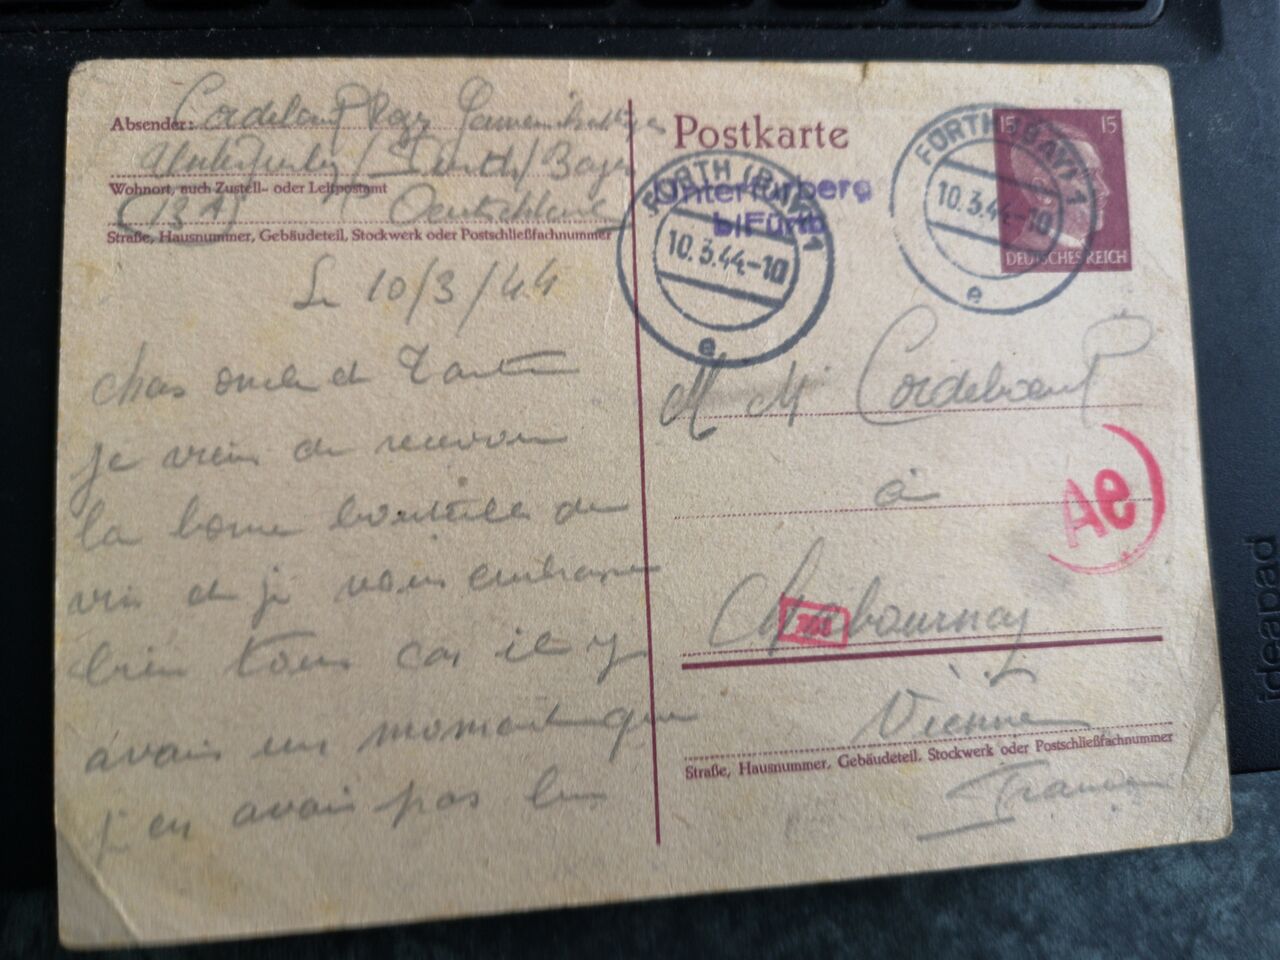 Absender: Cordebœuf
Unterfürberg / Fürth / Bayer
Wohnort, auch Zustell- oder Leitpostamt
(13A) Deutschland
Straße, Hausnummer, Gebäudeteil, Stockwerk oder Postschließfachnummer
Le 10/3/44
chers oncle et Tante
je viens de recevoir
la bonne bouteille de
vin et je vous embrasse
bien tous car il y
avais un moment que
j'en avais pas bu
Postkarte
Unterfürberg
b/Fürth
FÜRTH (BAY) 1
10.3.44-10
e
FÜRTH (BAY) 1
10.3.44-10
e
15 15
DEUTSCHES REICH
M Me Cordebœuf
à
Ae
Chabournay
Vienne
Straße, Hausnummer, Gebäudeteil, Stockwerk oder Postschließfachnummer
France
ideapad